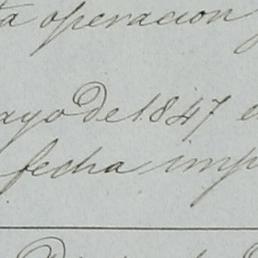 ta operacion
ayo de 1847
fecha imp